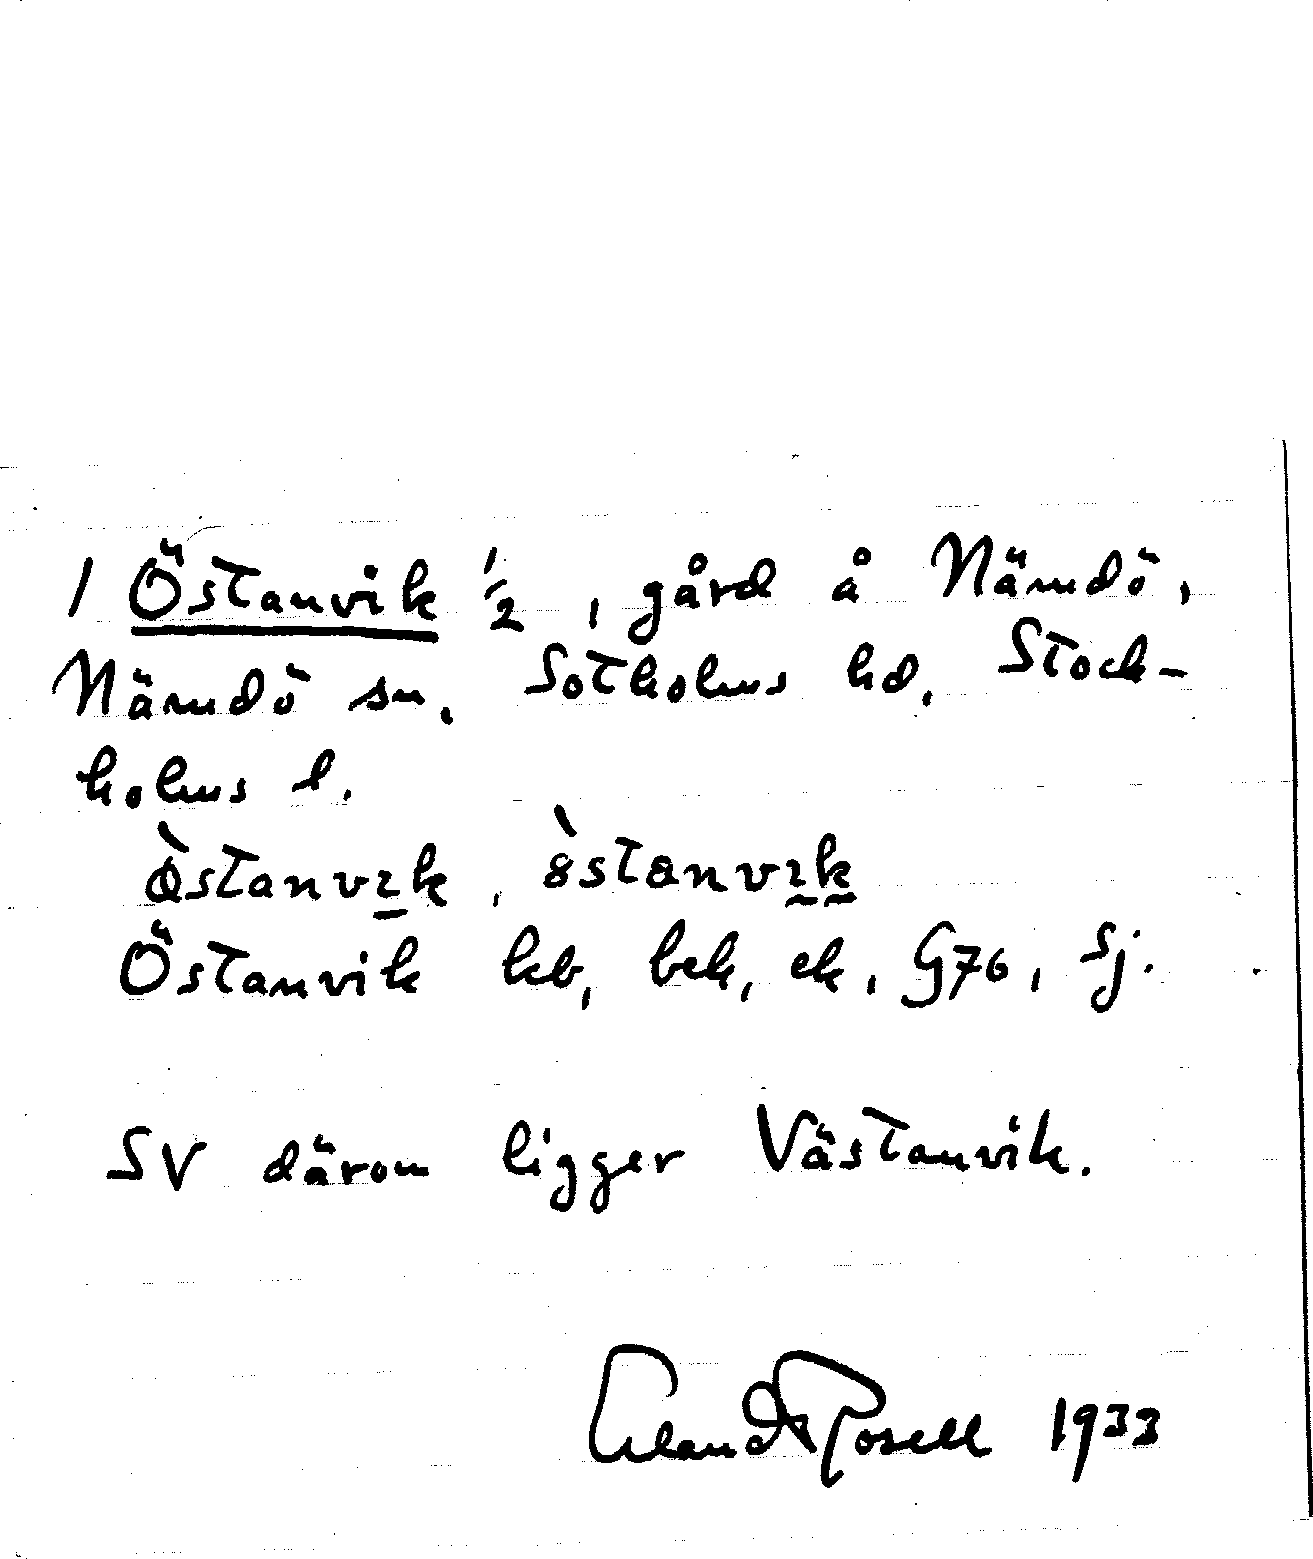 1 Östanvik ½, gård å Nämdö,
Nämdö sn. Sotholms hd. Stock-
holms l.
ø̀stanvɪ̠k, 8̀stanvɪ̰k̰
Östanvik kb, bek, ek, G76, Sj.
SV därom ligger Västanvik.
Erland Rosell 1933